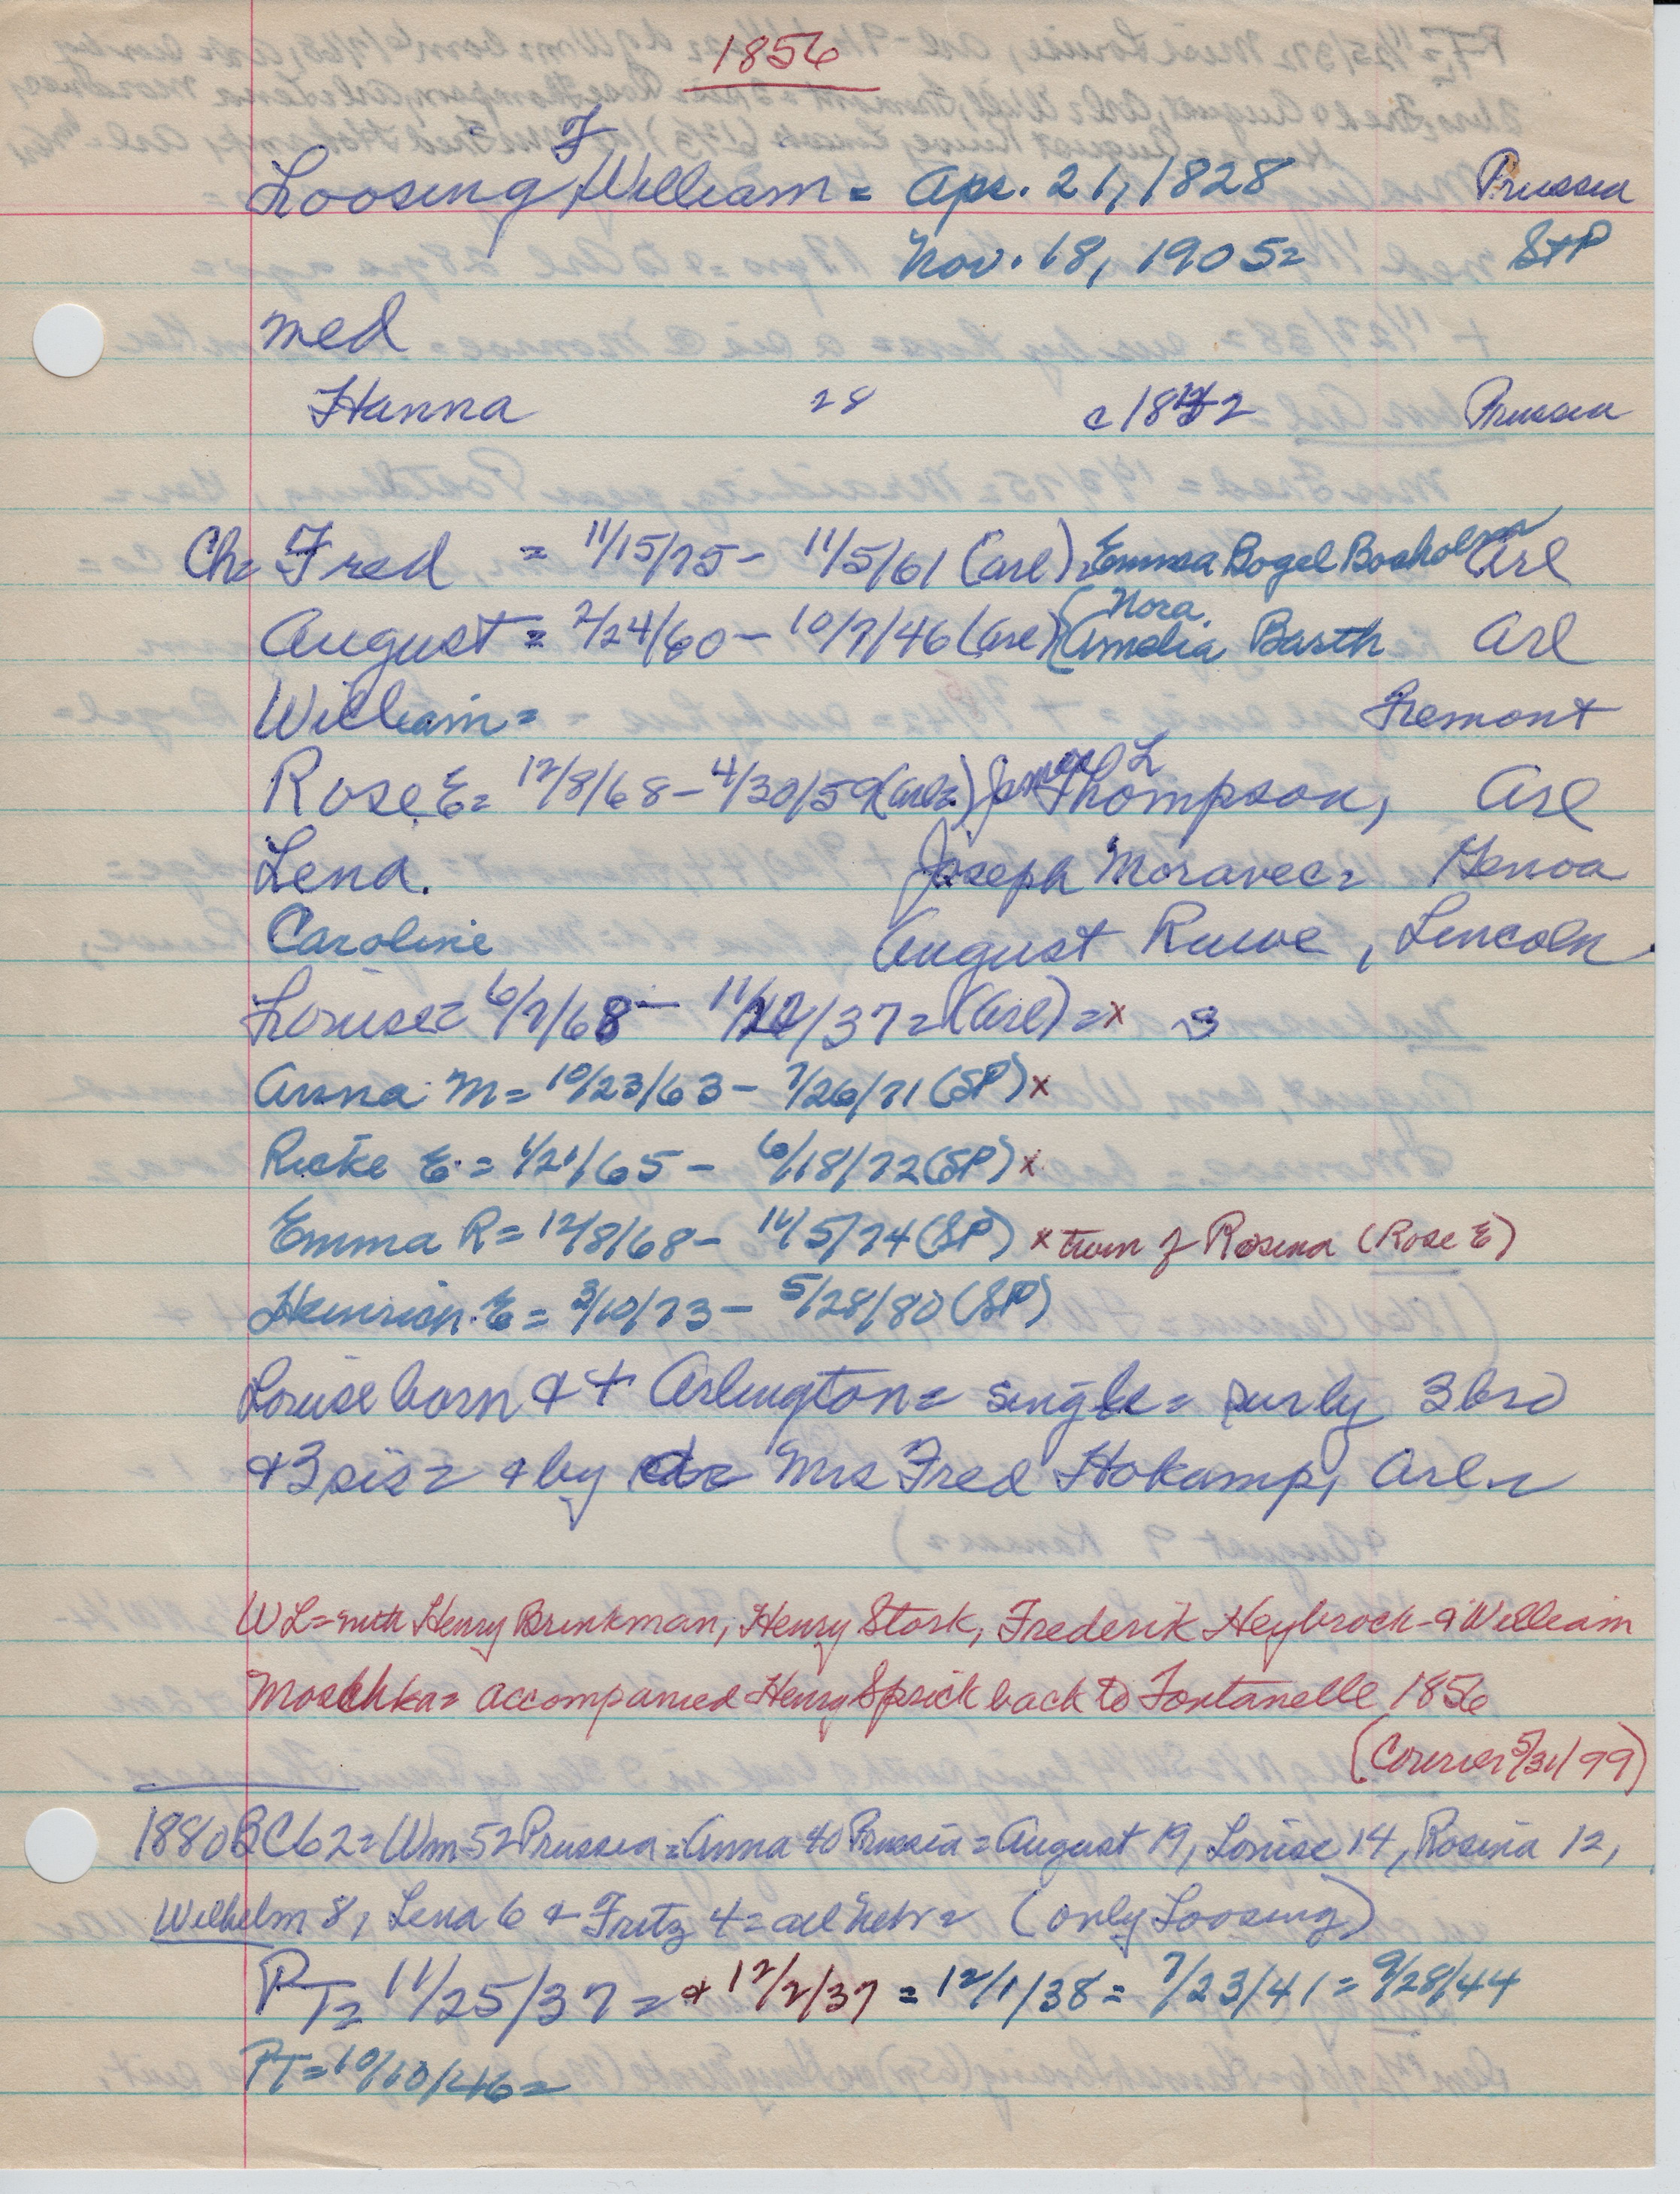 1856
Loosing, F William = Apr. 21, 1828 Prussia
Nov. 18, 1905 = StP
med
Hanna 28 c 1842 Prussia
Ch= Fred = 11/15/75 - 11/5/61 (Arl) = Emma Bogel Arl
August = 2/24/60 - 10/7/46 (Arl) (Nora. Amelia Barth Arl
William = Fremont
Rose E = 12/8/68 - 4/30/59 (Arl=) James L Thompson, Arl
Lena. Joseph Moravec = Genoa
Caroline August Ruwe, Lincoln
Louise = 6/7/68 - 11/ /37 = (Arl) = x
Anna M = 10/23/63 - 7/26/71 (SP) x
Rieke E. = 1/21/65 - 6/18/72 (SP) x
Emma R = 12/8/68 - 11/5/74 (SP) x twin of Rosina (Rose E)
Heinrich E = 3/10/73 - 5/28/80 (SP)
Louise born & + Arlington = single = surby 3 bro
& 3 sis = & by Mrs Fred Hokamp, Arl =
WL = with Henry Brinkman, Henry Stork, Frederik Heybrock & William
Moschka = accompanied Henry Sprick back to Fontanelle 1856
(Courier 5/31/99)
1880 BC62 = Wm 52 Prussia = Anna 40 Prussia = August 19, Louise 14, Rosina 12,
Wilhelm 8, Lena 6 & Fritz 4 = all Nebr = (only Loosing)
PT = 11/25/37 = & 12/2/37 = 12/1/38 = 7/23/41 = 9/28/44
PT = 10/10/46 =